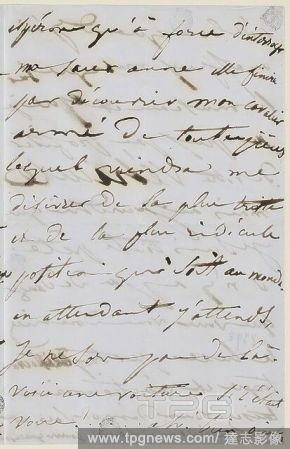 espérons qu'à force d'interroger
ma soeur anne elle finira
par découvrir mon cavalier
armé de toutes pièces
lequel viendra me
délivrer de la plus triste
et de la plus ridicule
position qui soit au monde.
en attendant j'attends,
Je ne sors pas de là.
voici une voiture si c'était
votre
TPG
www.tpgnews.com / 達志影像